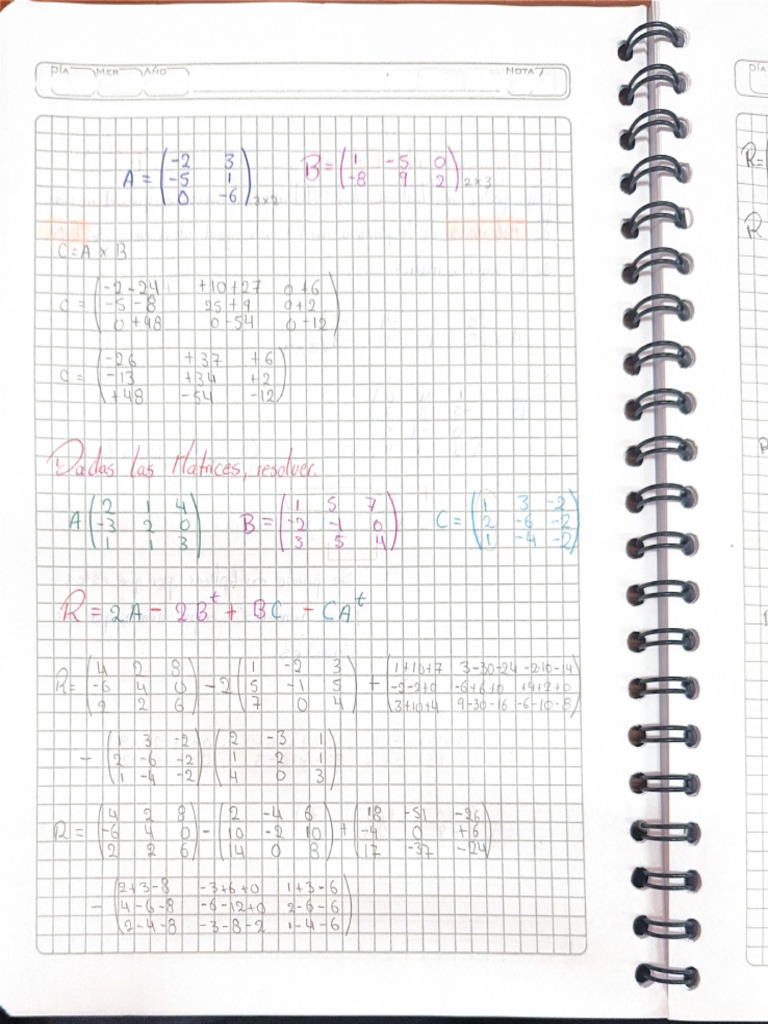 DÍA MES AÑO NOTA
A = (-2 3
-5 1
0 -6) 3x2
B = (1 -5 0
-8 9 2) 2x3
C = A x B
C = (-2-24 +10+27 0+6
-5-8 25+9 0+2
0+48 0-54 0-12)
C = (-26 +37 +6
-13 +34 +2
+48 -54 -12)
Dadas las Matrices, resolver.
A (2 1 4
-3 2 0
1 1 3)
B = (1 5 7
-2 -1 0
3 5 4)
C = (1 3 -2
2 -6 -2
1 -4 -2)
R = 2A - 2B^t + BC - CA^t
R = (4 2 8
-6 4 0
2 2 6) - 2 (1 -2 3
5 -1 5
7 0 4) + (1+10+7 3-30-24 -2-10-14
-2-2+0 -6+6+0 +4+2+0
3+10+4 9-30-16 -6-10-8)
- (1 3 -2
2 -6 -2
1 -4 -2) (2 -3 1
1 2 1
4 0 3)
R = (4 2 8
-6 4 0
2 2 6) - (2 -4 6
10 -2 10
14 0 8) + (18 -51 -26
-4 0 +6
17 -37 -24)
- (2+3-8 -3+6+0 1+3-6
4-6-8 -6-12+0 2-6-6
2-4-8 -3-8-2 1-4-6)
DÍA
R=(
R